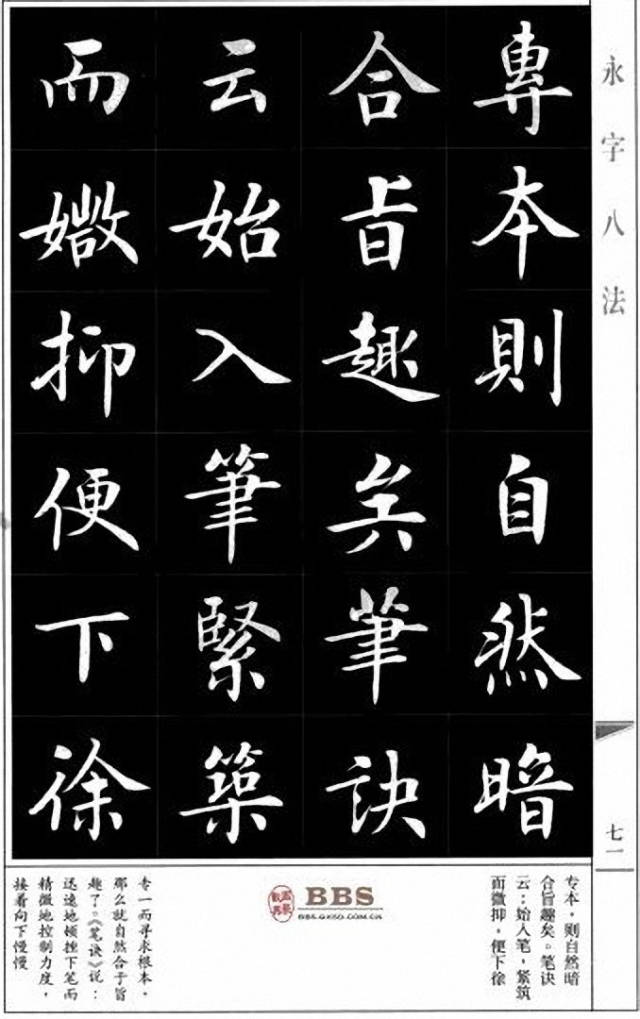 永字八法
專本則自然暗
合旨趣矣筆訣
云始入筆緊築
而媺抑便下徐
七一
专本,则自然暗
合旨趣矣。笔诀
云:始入笔,紧筑
而微抑,便下徐
BBS
BBS.GXSD.COM.CN
专一而寻求根本,
那么就自然合于旨
趣了。《笔诀》说:
迅速地顿挫下笔而
精微地控制力度,
接着向下慢慢